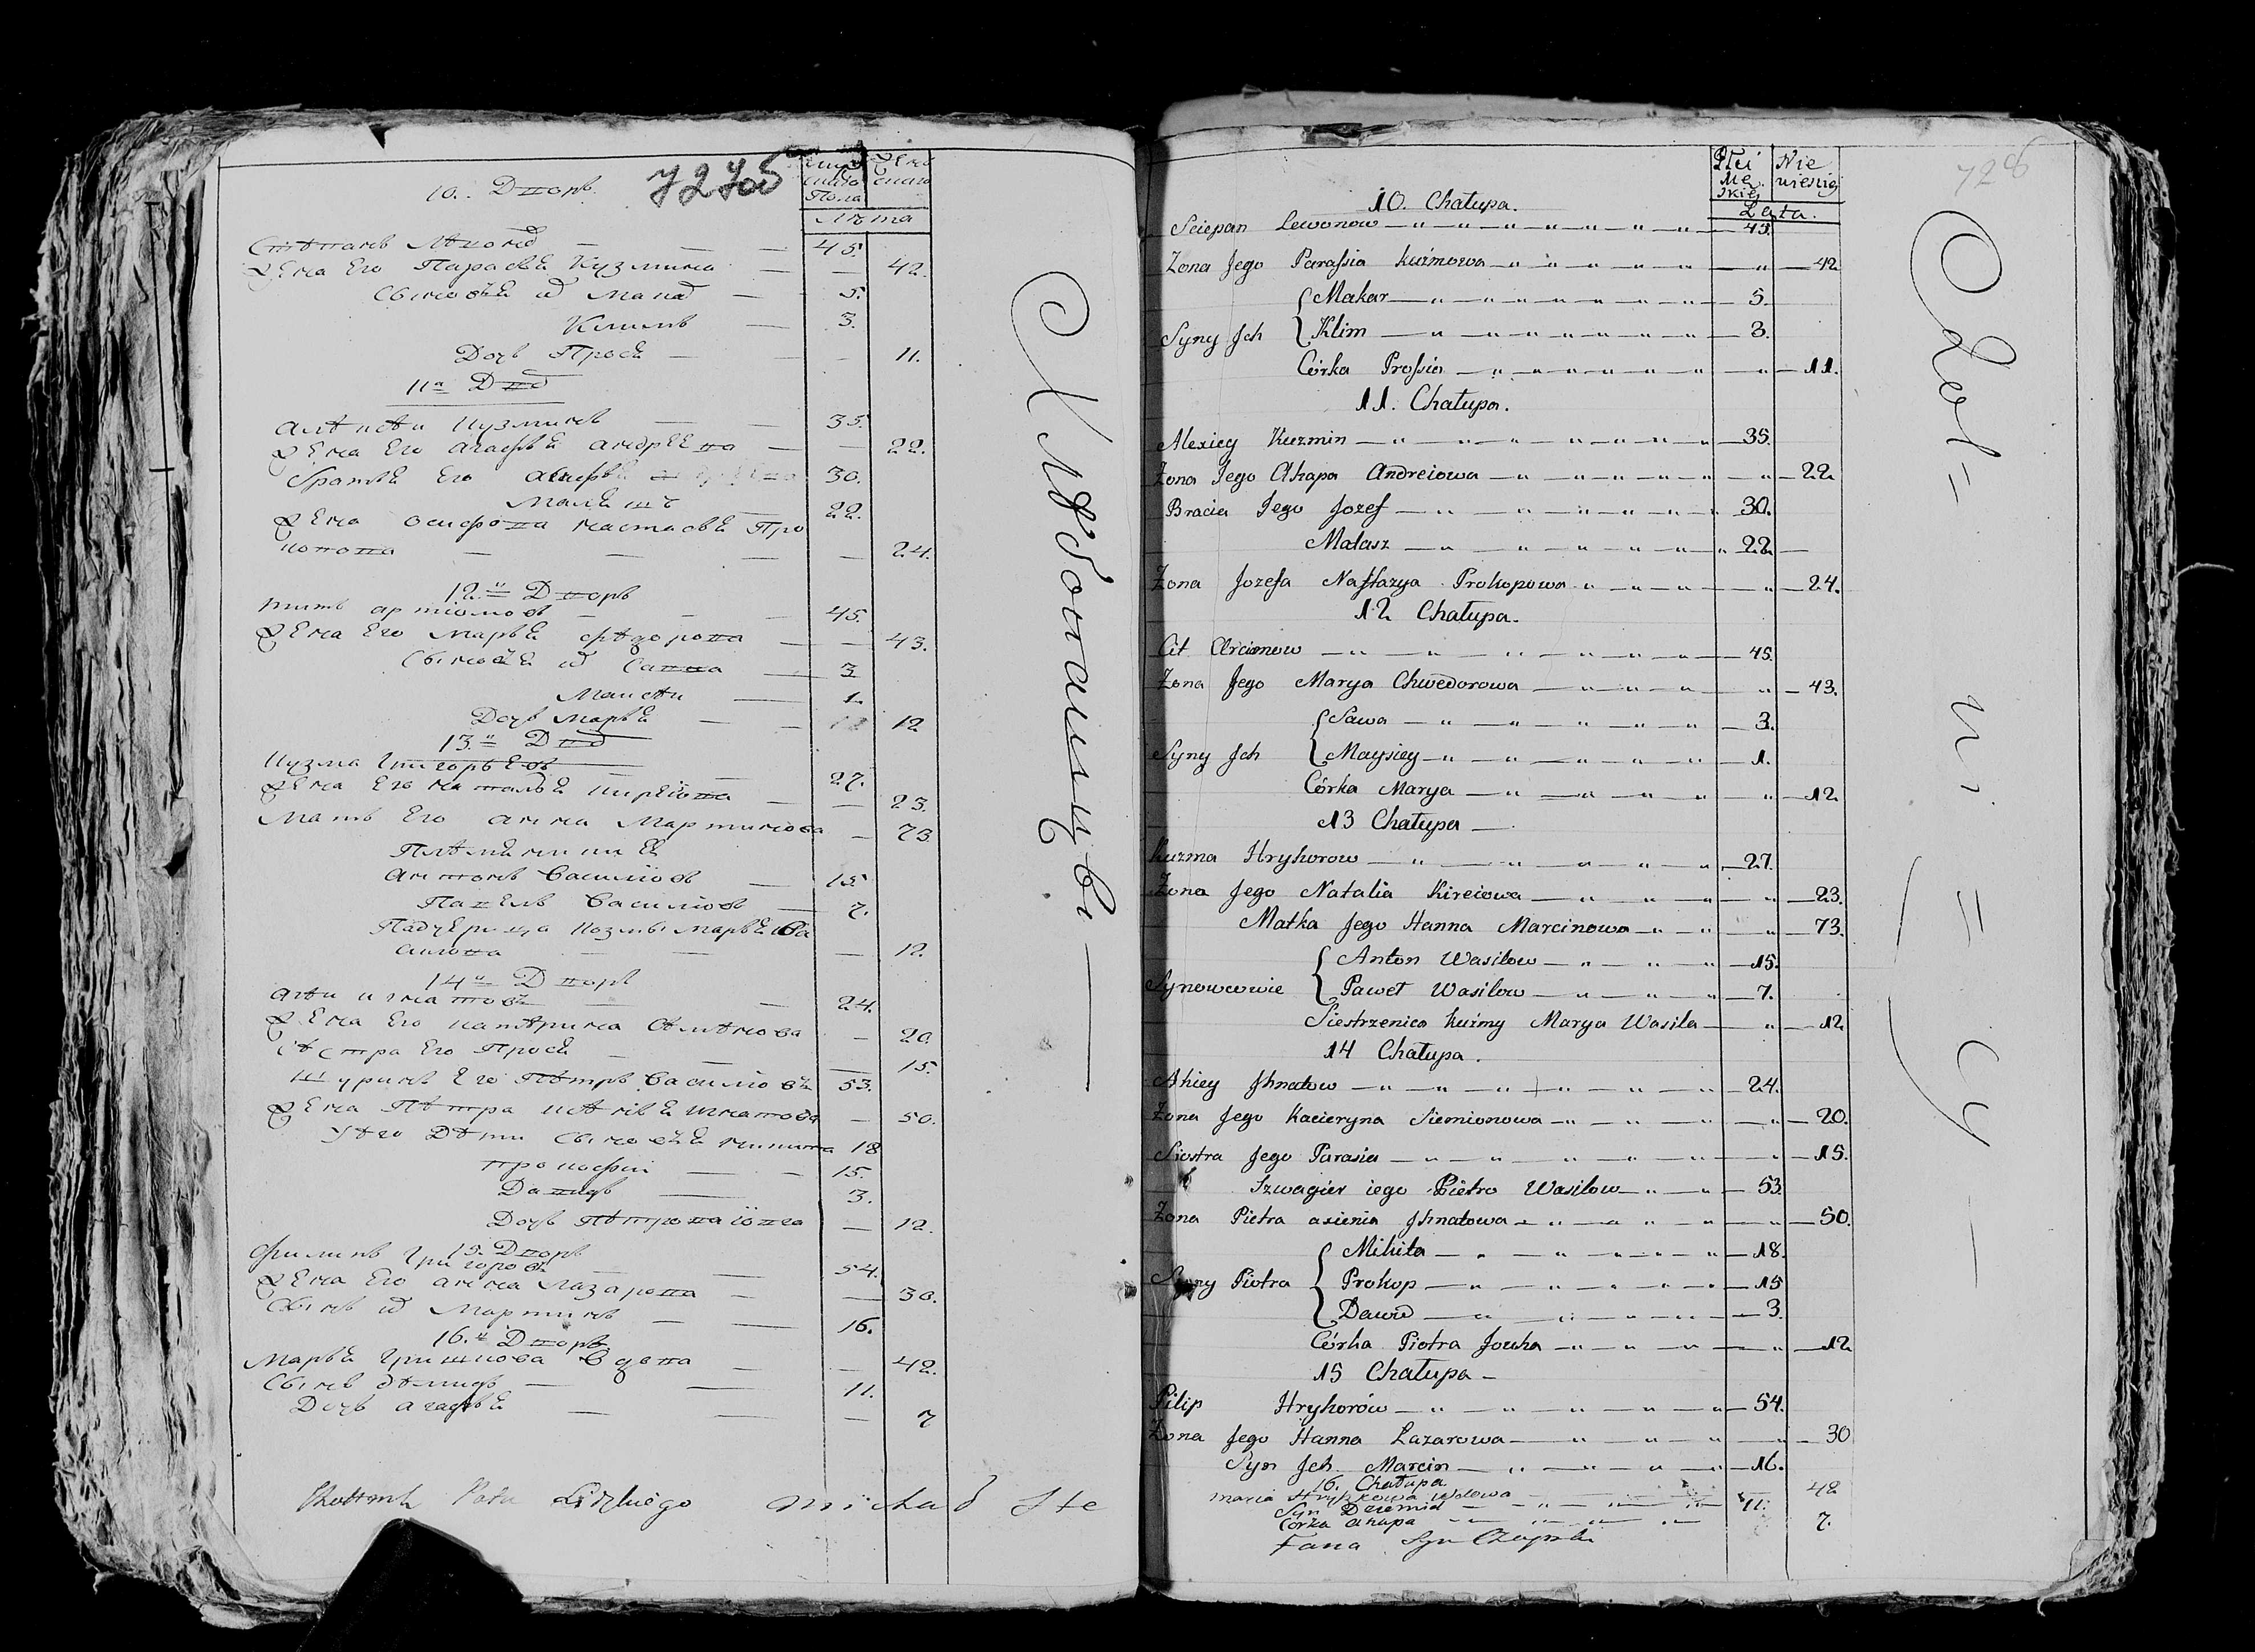 727об
10. Дворъ
Мужескаго Пола
Женскаго
Лѣта
Степанъ Леонов 45.
Жена Его Парасья Кузмина 42.
Сыновья их Макар 5.
Климъ 3.
Дочь Прося 11.
11й Двор
Алексей Кузминъ 35.
Жена Его Агафья Андреева 22.
Братья Его 30.
22.
Жена Осифова Настасья Про
копова 24.
12й Дворъ
Титъ Артіомов 45.
Жена Его Марья Федорова 43.
Сыновья их Савва 3
Моисей 1.
Дочь Марья 12
13й Двор
Кузма Григорьев 27.
Жена Его Наталья Кирейова 23.
Мать Его Анна Мартинова 73
Племянники
Антонъ Василіов 15
Павелъ Василіов 7.
Падчерица Козмы Марья Ва
силова 12.
14й Дворъ
Агей Игнатов 24.
Жена Его Катерина Семенова 20
Сестра Его Прося 15.
Шуринъ Его Петръ Василіовъ 53.
Жена Петра Игнатова 50.
У Его Дети Сыновья Никита 18
Прокофій 15.
Давидъ 3.
Дочь Петрова 12.
15. Дворъ
Филипъ Григоров 54.
Жена Его Анна Лазарова 30.
Сынъ их Мартинъ 16.
16.й Дворъ
Марья Гришкова Вдова 42.
Сынъ Демидъ 11.
Дочь Агафья 7
Powiatu Lidzkiego Michał Ste
728
Płci Męskiej
Niewiesciej
Lata.
10. Chałupa.
Sciepan Lewonow — 45.
Zona Jego Parassia Kuźmowa — 42
Syny Jch { Makar — 5.
Klim — 3.
Córka Prossia — 11.
11. Chałupa.
Alexiey Kuzmin — 35.
Zona Jego Ahapa Andreiowa — 22
Bracia Jego Jozef — 30.
Małasz — 22
Zona Jozefa Nastazya Prokopowa — 24.
12 Chałupa.
Cit Arcionow — 45.
Zona Jego Marya Chwedorowa — 43.
Syny Jch { Sawa — 3.
Maysiey — 1.
Córka Marya — 12
13 Chałupa —
Kuzma Hryhorow — 27.
Żona Jego Natalia Kireiowa — 23.
Matka Jego Hanna Marcinowa — 73.
Synowcowie { Anton Wasilow — 15.
Paweł Wasilow — 7.
Siestrzenica Kuźmy Marya Wasila — 12
14 Chałupa.
Ahiey Jhnatow — 24.
Zona Jego Kacieryna Siemionowa — 20.
Siostra Jego Parasia — 15.
Szwagier iego Pietro Wasilow — 53.
Zona Pietra axienia Jhnatowa — 50.
Syny Piotra { Mikita — 18.
Prokop — 15
Dawid — 3.
Córka Piotra Jowha — 12
15 Chałupa —
Pilip Hryhorów — 54.
Zona Jego Hanna Lazarowa — 30
Syn Jch Marcin — 16.
16. Chałupa
Maria Hryszkowa Wdowa — 42
Syn Dziemid — 11.
Córka Ahapa — 7.